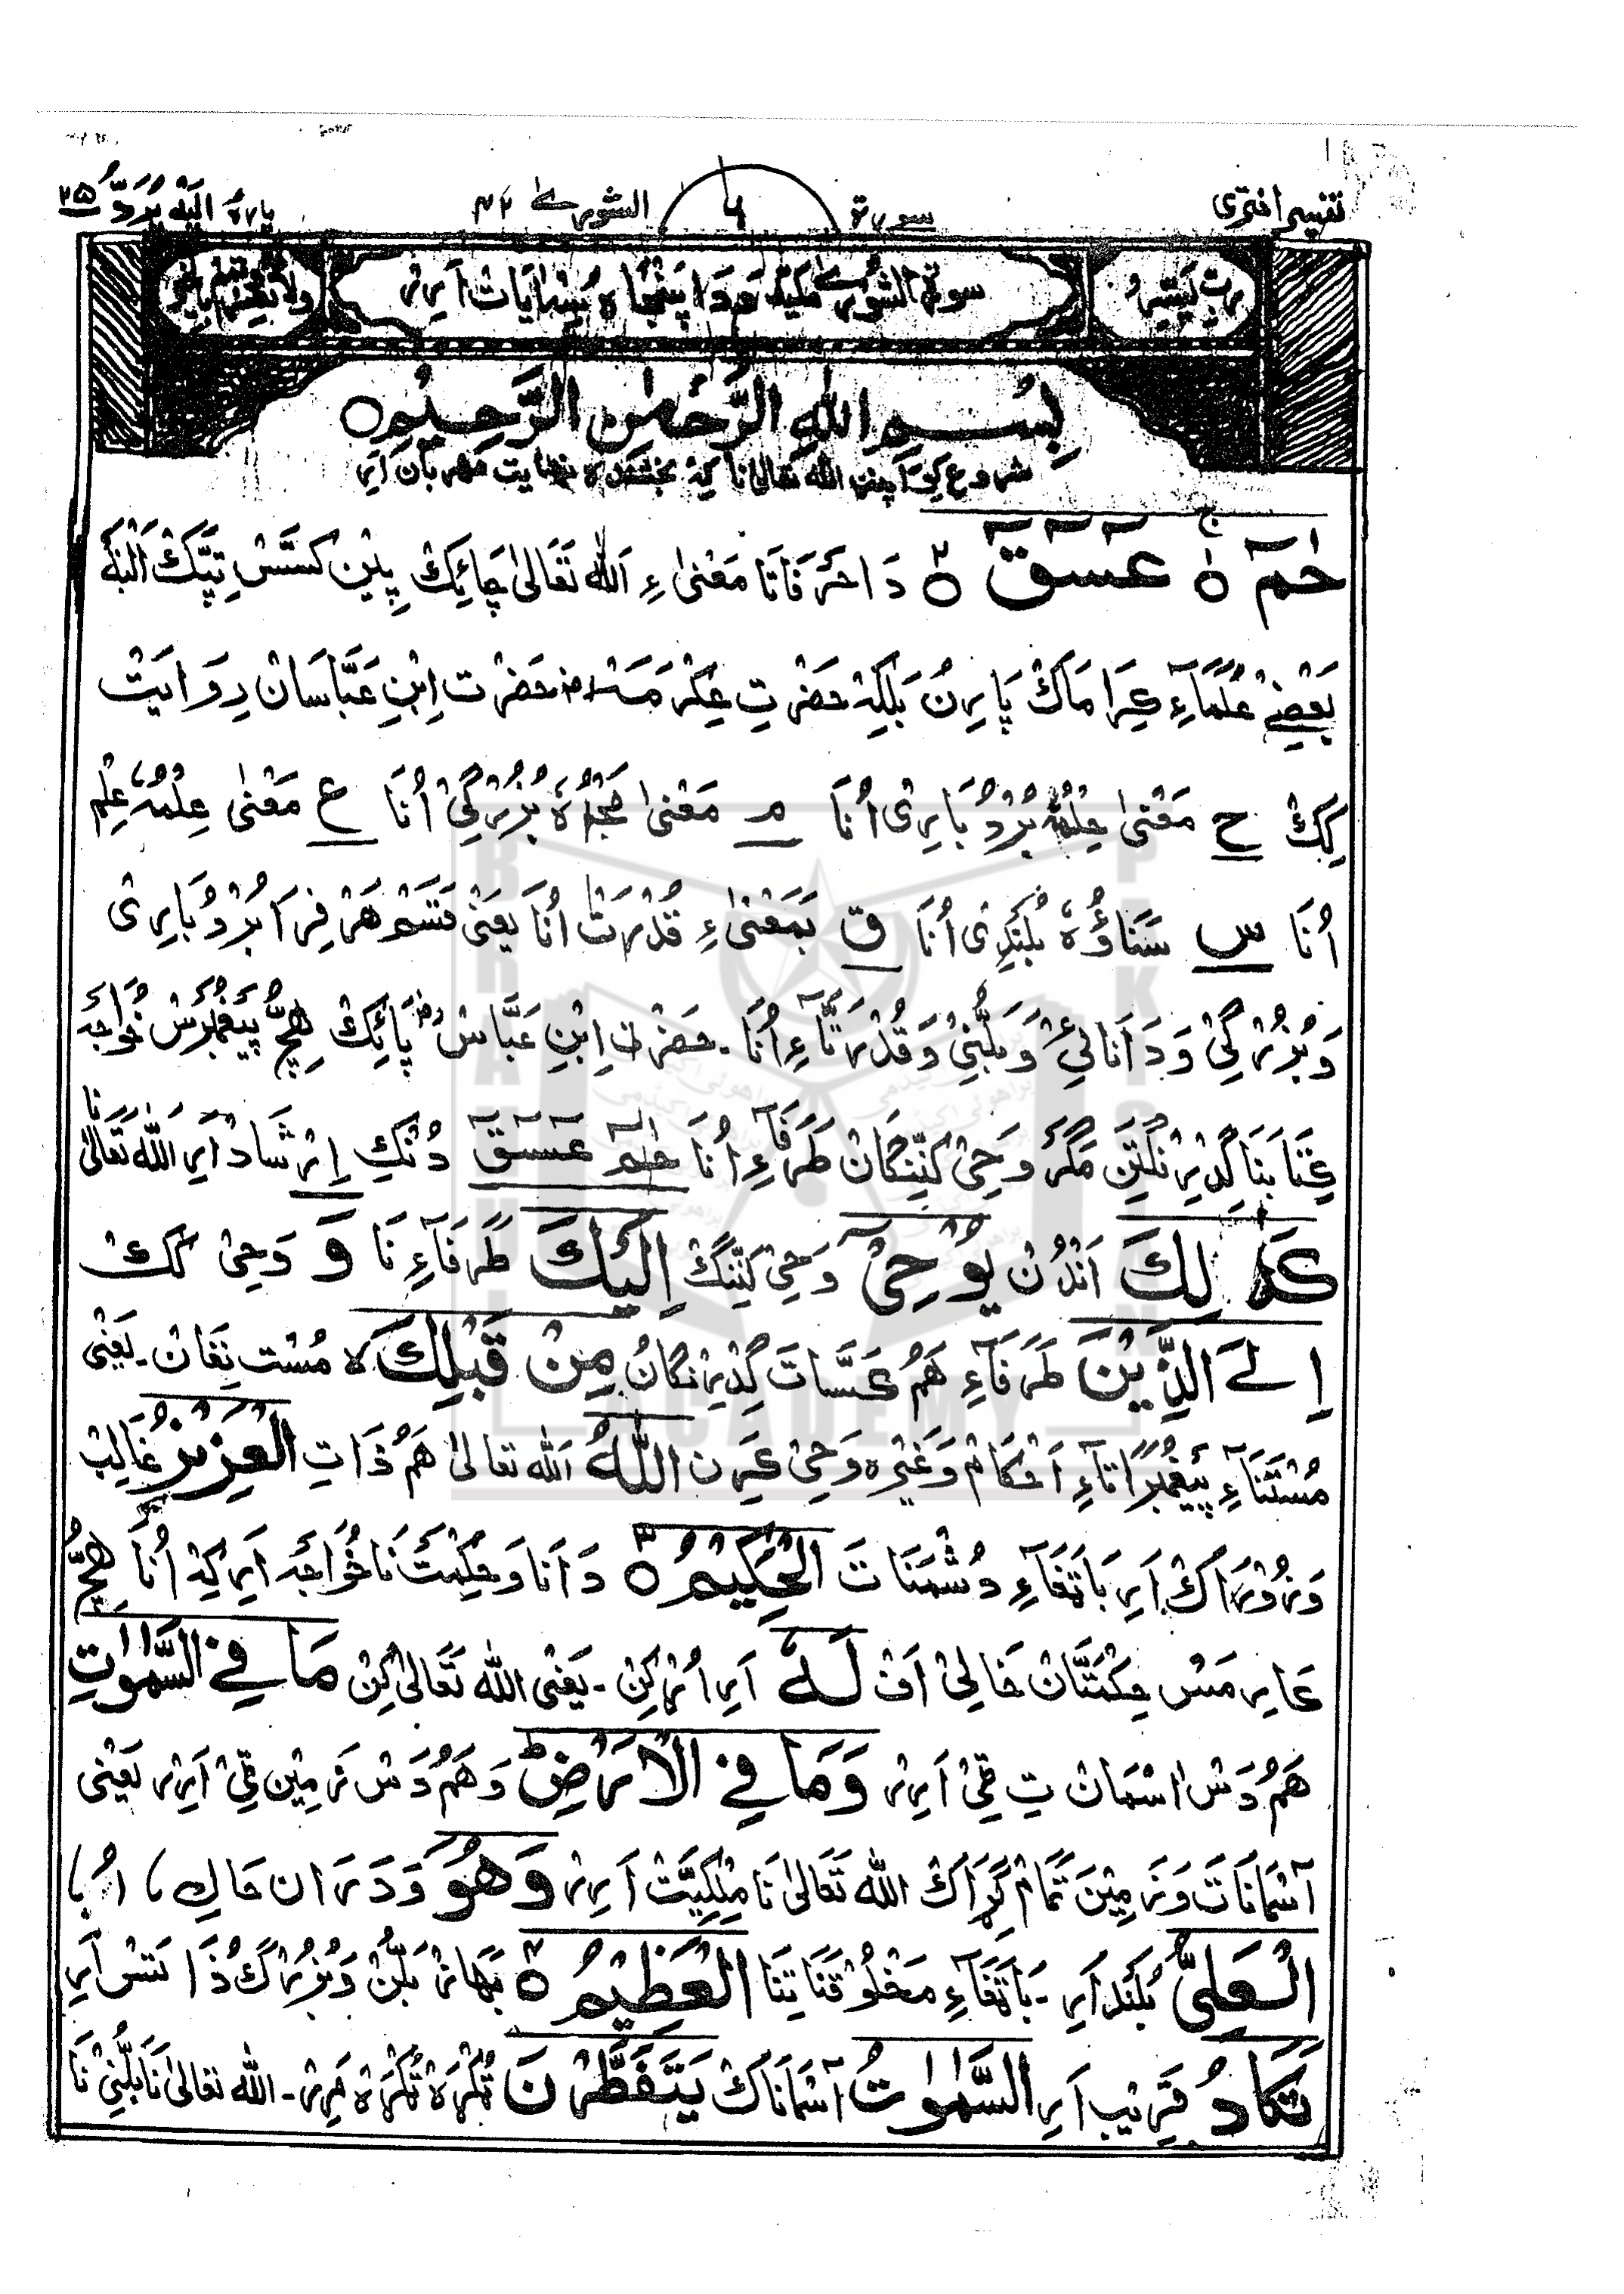 تفسیر اختری سورة ٦ الشوریٰ ٤٢ پارہ الیہ یرد ۲۵
رب یسر سورة الشوریٰ مکیة و دا پنجاہ سہ ایات ارر ولا تعسر و تمم بالخیر
بِسْمِ اللّٰهِ الرَّحْمٰنِ الرَّحِیْمِ ٥
شروع کیوہ پنٹ اللہ تعالیٰ نا کہ بخشندہ نہایت مهربان ارِ
حٰمٓ ٥ۚ عٓسٓقٓ ٥ دَا حَرفَاتَا مَعْنیٰ ءِ اَللّٰه تَعَالیٰ چَائِکْ پِیْن کَسَّسْ تِپَّکْ اَلْبَتَّہ
بَعْضِے عُلَمَاءِ کِرَامَاکْ پَارِنُ بَلکِہْ حَضْرتِ عِکْرَمَہ رض حَضْرت اِبْنِ عَبَّاسَانْ رِوَایَتْ
کِکْ ح مَعْنیٰ حِلْمُہٗ بُرْدُبَارِیْ اُنَا مـ مَعْنیٰ مَجْدُہٗ بُزُرْگِیْ اُنَا ع مَعْنیٰ عِلْمُہٗ عِلْم
اُنَا س سَنَاؤُہٗ بُلَنْدِیْ اُنَا ق بَمَعْنیٰ ءِ قُدْرَتْ اُنَا یَعْنِیْ قَسَمْ هَرْفِرَا بُرْدُبَارِیْ
وَبُزُرْگِیْ وَدَانَائِیْ وَبَلُّنِیْ وَقُدْرَتَّاءِ اُنَا ۔ حَضْرت اِبْنِ عَبَّاسْ رض پَائِکْ هِچّ پَیْغَمْبَرَسْ خُوَاجَہ
کِتَابَنَا گِدْرِنْگتَنِ مَگَر وَحِیْ کَنِّنْگَانْ طَرَفَآءِ اُنَا حٰمٓ عٓسٓقٓ دُنْکِ اِرْشَادْ اَرِ اَللّٰه تَعَالیٰ نَا
کَذٰلِكَ اَنْدُنْ یُوْحِیْٓ وَحِیْ کَنِّنْگْ اِلَیْكَ طَرَفَآءِ نَا وَ وَحِیْ کَکْ
اِلَے الَّذِیْنَ طَرَفَآءِ هَمُ کَسَّاتَ گِدْرِنْگَانُ مِنْ قَبْلِكَ لا مُسْت نِغَانْ ۔ یَعْنِیْ
مُسْتَنَاءِ پَیْغَمْبَرَاتَاءِ اَحْکَامْ وَغَیْرہ وَحِیْ کَرِن اللّٰهُ اَللّٰه تعالیٰ هَمُ ذَاتِ الْعَزِیْزُ غَالِبْ
وَزوْرَاکْ اَرِ بَاتْغَآءِ دُشْمَنَاتَ الْحَکِیْمُ ٥ دَانَا وَحِکْمَتْ نَا خُوَاجَہ اَرِ کِہ اُنَا هِچّ
کَارِمَسْ حِکْمَتَانْ خَالِیْ اَفْ لَهٗ اَرِ اُرْکِنْ ۔ یَعْنِی اللّٰه تَعَالیٰ کِنْ مَا فِے السَّمٰوٰتِ
هَمُ دَسْ اسْمَانْ تِ ٹِیْ اَرِرْ وَمَا فِے الْاَرْضِ ط وَهَمُ دَسْ زَمِیْن ٹِیْ اَرِرْ یَعْنِی
آسْمَانَاتَ وَزَمِیْنَ تَمَامْ گِڑَاکْ اللّٰه تَعَالیٰ نَا مِلْکِیَّتْ اَرِرْ وَهُوَ وَدَرَان حَالِ
الْعَلِیُّ بُلَنْد اَرِ ۔ بَاتْغَآءِ مَخْلُوْقَنَا تِنَا الْعَظِیْمُ ٥ بَهَازْ بَلُّنْ وَبُزُرْگ ذَاتَسْ اَرِ
تَکَادُ قَرِیْب اَرِ السَّمٰوٰتُ آسْمَانَاکْ یَتَفَطَّرْنَ ٹُکْرَہْ ٹُکْرَہْ مَرِرْ ۔ اللّٰه تعالیٰ نَا بَلُّنِیْ نَا